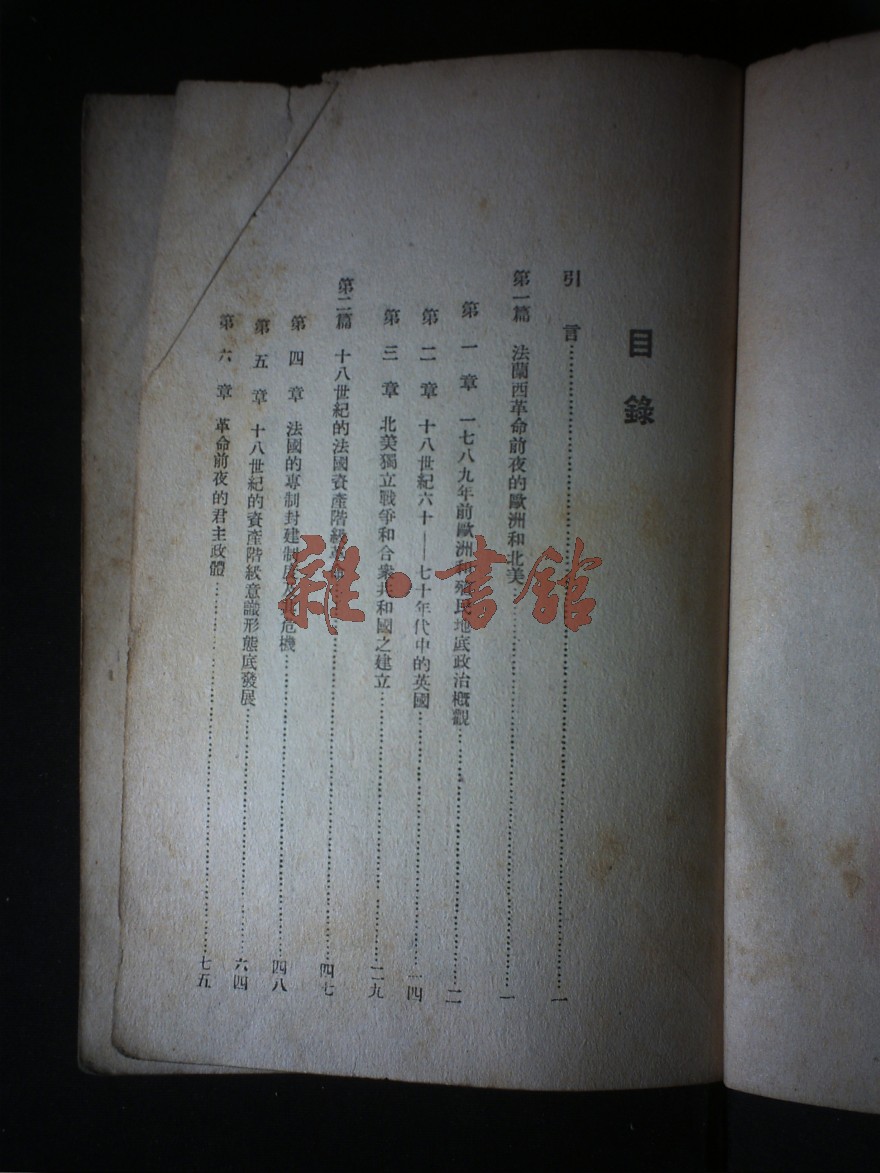 目錄
引言……一
第一篇 法蘭西革命前夜的歐洲和北美……一
第一章 一七八九年前歐洲和殖民地底政治概觀……二
第二章 十八世紀六十——七十年代中的英國……一四
第三章 北美獨立戰爭和合衆共和國之建立……二九
第二篇 十八世紀的法國資產階級革命……四七
第四章 法國的專制封建制度及其危機……四八
第五章 十八世紀的資產階級意識形態底發展……六四
第六章 革命前夜的君主政體……七五
雜·書館